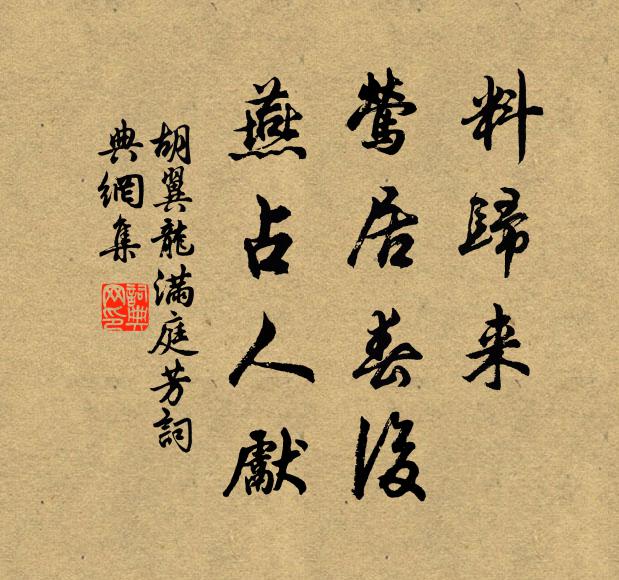 料歸来
鶯居春後
燕占人獻
胡翼龍滿庭芳詞
典網集
詞典網印